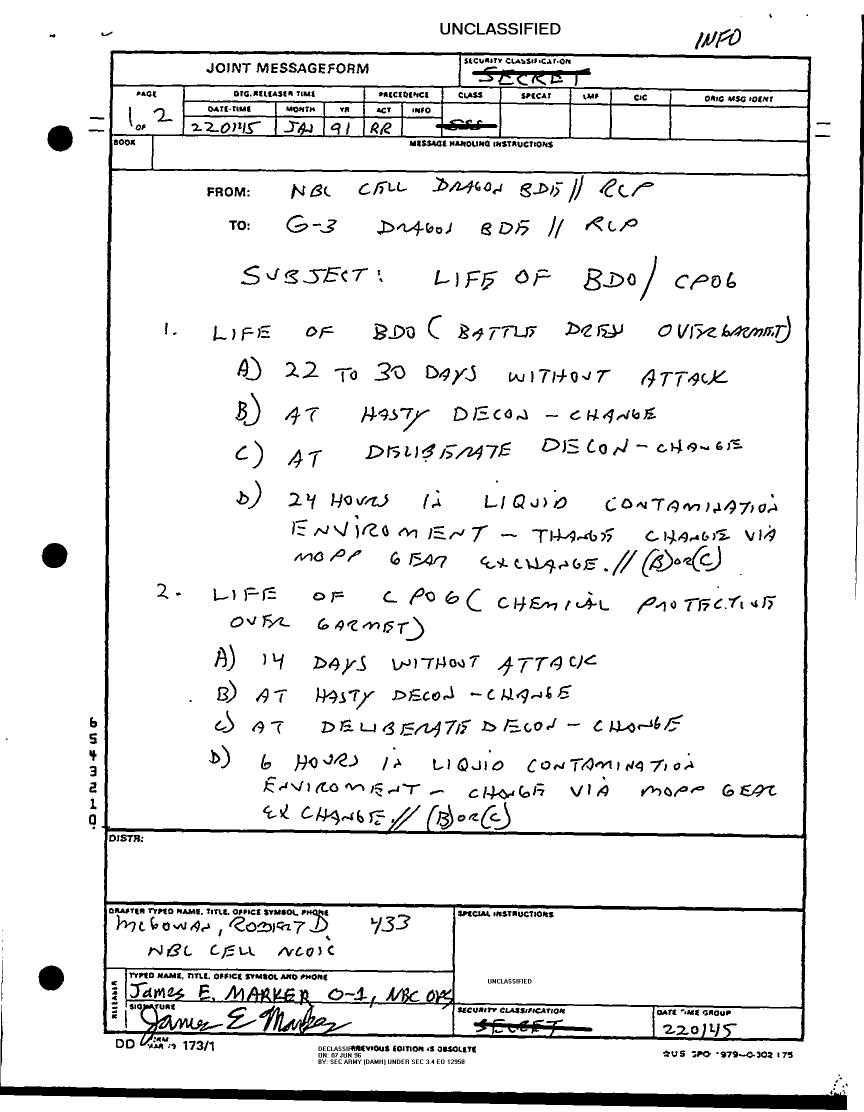 UNCLASSIFIED
INFO
JOINT MESSAGEFORM
SECURITY CLASSIFICATION
SECRET
PAGE
DTG, RELEASER TIME
PRECEDENCE
CLASS
SPECAT
LMF
CIC
ORIG MSG IDENT
DATE-TIME
MONTH
YR
ACT
INFO
1 OF 2
220145
JAN
91
RR
SSS
BOOK
MESSAGE HANDLING INSTRUCTIONS
FROM: NBC CELL DRAGON BDE // RCP
TO: G-3 DRAGON BDE // RCP
SUBJECT: LIFE OF BDO / CPOG
1. LIFE OF BDO ( BATTLE DRESS OVERGARMET)
A) 22 TO 30 DAYS WITHOUT ATTACK
B) AT HASTY DECON - CHANGE
C) AT DELIBERATE DECON - CHANGE
D) 24 HOURS IN LIQUID CONTAMINATION
ENVIROMENT - CHANGE VIA
MOPP GEAR EXCHANGE. // (B) OR (C)
2. LIFE OF CPOG ( CHEMICAL PROTECTIVE
OVER GARMET)
A) 14 DAYS WITHOUT ATTACK
B) AT HASTY DECON - CHANGE
C) AT DELIBERATE DECON - CHANGE
D) 6 HOURS IN LIQUID CONTAMINATION
ENVIROMENT - CHANGE VIA MOPP GEAR
EXCHANGE. // (B) OR (C)
6
5
4
3
2
1
0
DISTR:
DRAFTER TYPED NAME, TITLE, OFFICE SYMBOL, PHONE
McGOWAN, ROBERT D 433
NBC CELL NCOIC
SPECIAL INSTRUCTIONS
UNCLASSIFIED
RELEASER
TYPED NAME, TITLE, OFFICE SYMBOL AND PHONE
James E. MARKER O-1, NBC OPS
SIGNATURE
James E Marker
SECURITY CLASSIFICATION
SECRET
DATE TIME GROUP
220145
DD FORM MAR 79 173/1
PREVIOUS EDITION IS OBSOLETE
DECLASSIFIED
ON: 07 JUN 96
BY: SEC ARMY (DAMH) UNDER SEC 3.4 EO 12958
US GPO 1979-0-302 175